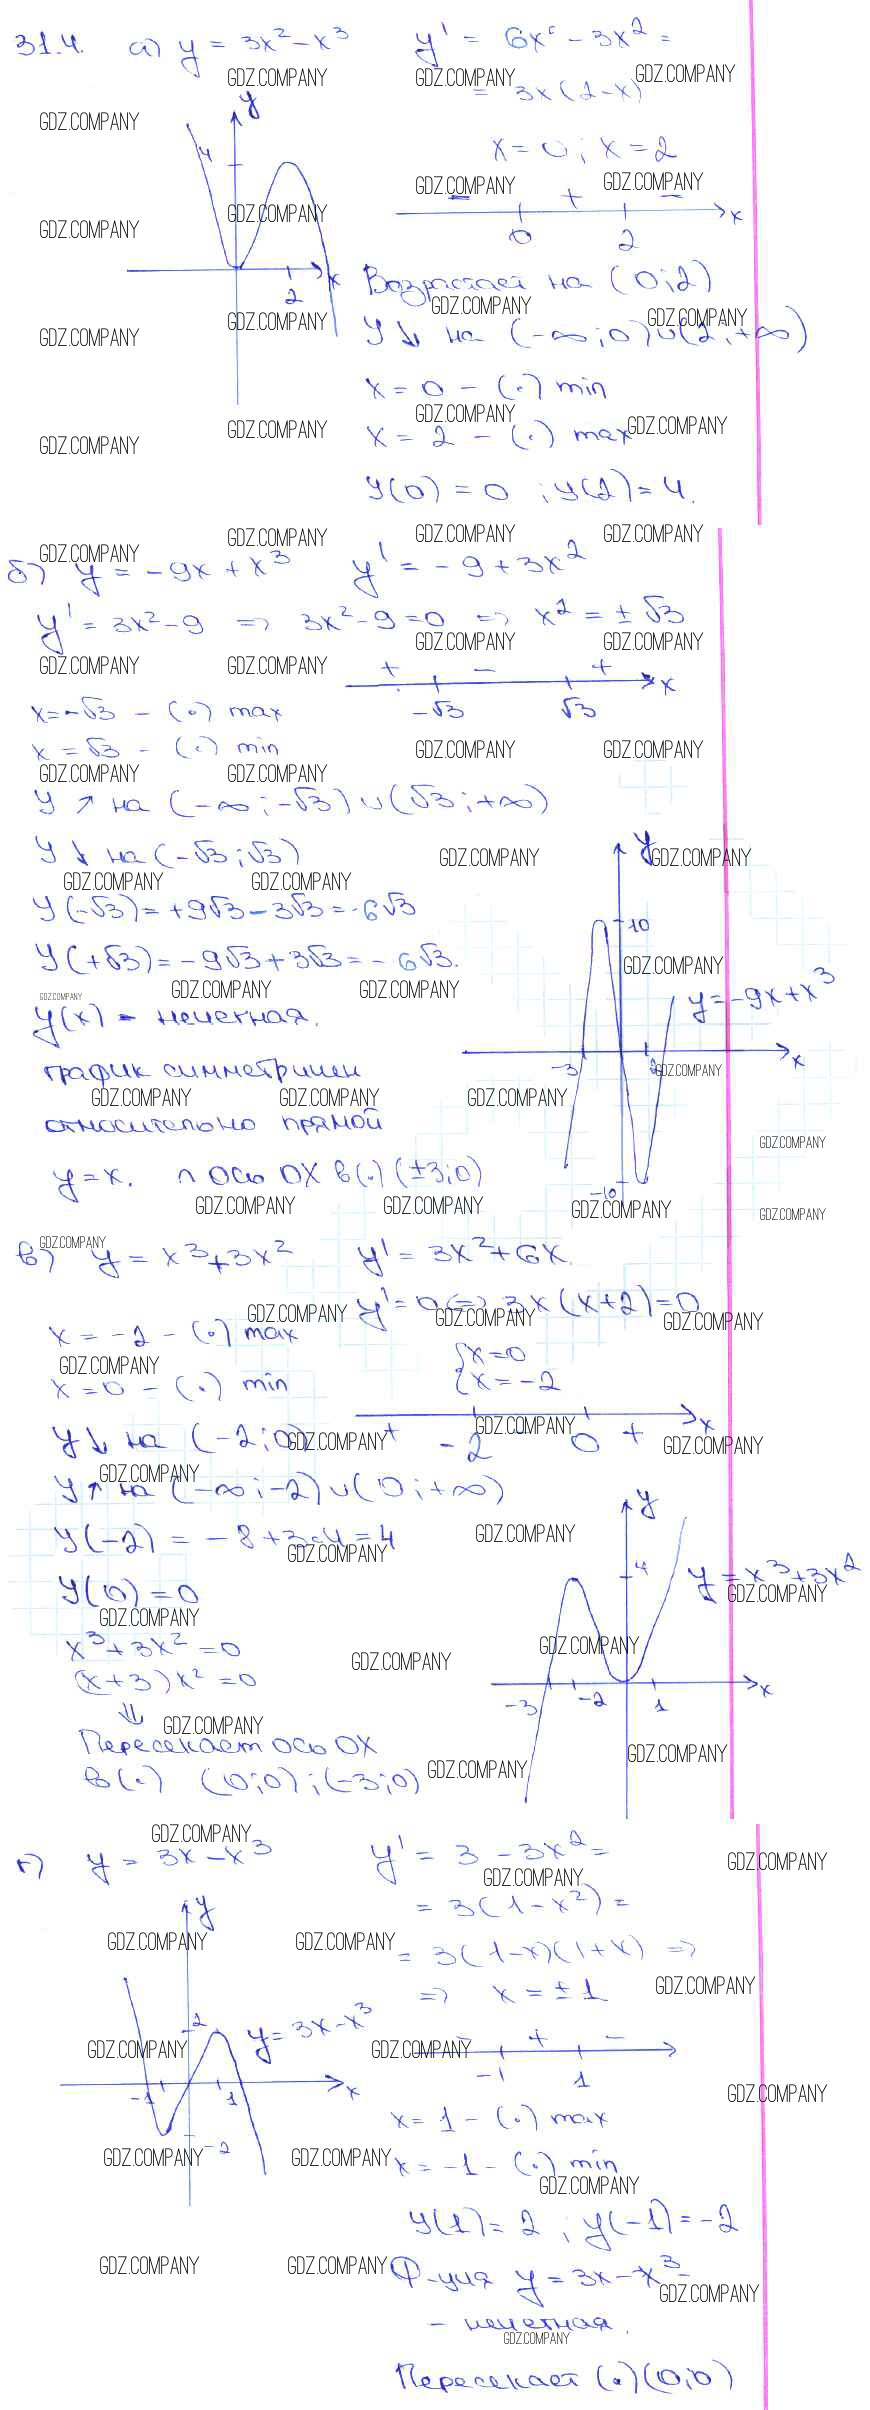 31.4. а) y = 3x² - x³ y' = 6x - 3x² =
= 3x(2-x)
x = 0; x = 2
- + -
0 2 x
y
4
2 x
Возрастает на (0;2)
y↓ на (-∞;0)∪(2;+∞)
x = 0 - (.) min
x = 2 - (.) max
y(0) = 0 ; y(2) = 4.
б) y = -9x + x³ y' = -9 + 3x²
y' = 3x² - 9 => 3x² - 9 = 0 => x² = ±√3
+ - +
-√3 √3 x
x = -√3 - (.) max
x = √3 - (.) min
y ↑ на (-∞;-√3)∪(√3;+∞)
y ↓ на (-√3;√3)
y(-√3) = +9√3 - 3√3 = -6√3
y(+√3) = -9√3 + 3√3 = -6√3.
y(x) - нечетная.
график симметричен
относительно прямой
y = x. ∩ Ось OX в(.) (±3;0)
y
10
y = -9x + x³
-3 x
-10
в) y = x³ + 3x² y' = 3x² + 6x.
y' = 0 => 3x(x+2) = 0
x = -2 - (.) max
x = 0
x = 0 - (.) min
x = -2
+ -2 0 + x
y↓ на (-2;0)
y↑ на (-∞;-2)∪(0;+∞)
y(-2) = -8 + 3·4 = 4
y(0) = 0
x³ + 3x² = 0
(x+3)x² = 0
⇓
Пересекает ось OX
в(.) (0;0);(-3;0)
y
4
y = x³ + 3x²
-3 -2 1 x
г) y = 3x - x³ y' = 3 - 3x² =
= 3(1 - x²) =
= 3(1-x)(1+x) =>
=> x = ±1
- + -
-1 1
y
2
y = 3x - x³
-1 1 x
-2
x = 1 - (.) max
x = -1 - (.) min
y(1) = 2 ; y(-1) = -2
Ф-ция y = 3x - x³ -
- нечетная.
Пересекает (.)(0;0)
GDZ.COMPANY